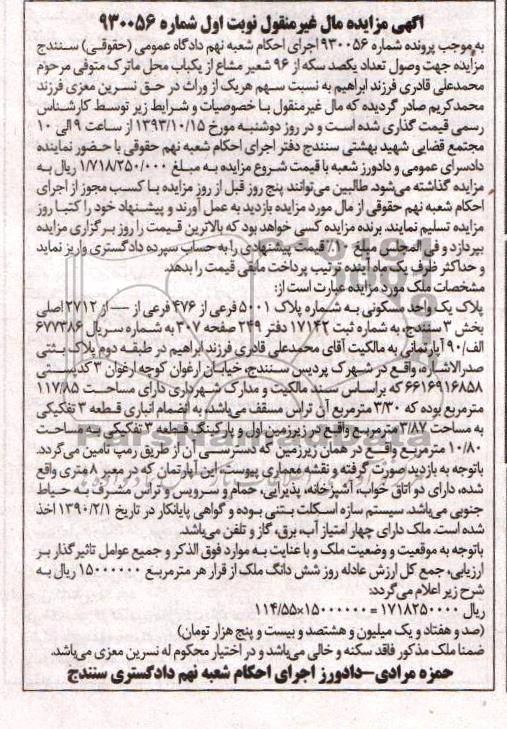 آگهی مزایده مال غیرمنقول نوبت اول شماره ۹۳۰۰۵۶
به موجب پرونده شماره ۹۳۰۰۵۶ اجرای احکام شعبه نهم دادگاه عمومی (حقوقی) سنندج
مزایده جهت وصول تعداد یکصد سکه از ۹۶ شعیر مشاع از یکباب محل ماترک متوفی مرحوم
محمدعلی قادری فرزند ابراهیم به نسبت سهم هریک از وراث در حق نسرین معزی فرزند
محمدکریم صادر گردیده که مال غیرمنقول با خصوصیات و شرایط زیر توسط کارشناس
رسمی قیمت گذاری شده است و در روز دوشنبه مورخ ۱۳۹۳/۱۰/۱۵ از ساعت ۹ الی ۱۰
مجتمع قضایی شهید بهشتی سنندج دفتر اجرای احکام شعبه نهم حقوقی با حضور نماینده
دادسرای عمومی و دادورز شعبه با قیمت شروع مزایده به مبلغ ۱/۷۱۸/۲۵۰/۰۰۰ ریال به
مزایده گذاشته می‌شود. طالبین می‌توانند پنج روز قبل از روز مزایده با کسب مجوز از اجرای
احکام شعبه نهم حقوقی از مال مورد مزایده بازدید به عمل آورند و پیشنهاد خود را کتبا روز
مزایده تسلیم نمایند. برنده مزایده کسی خواهد بود که بالاترین قیمت را روز برگزاری مزایده
بپردازد و فی المجلس مبلغ ۱۰٪ قیمت پیشنهادی را به حساب سپرده دادگستری واریز نماید
و حداکثر ظرف یک ماه آینده ترتیب پرداخت مابقی قیمت را بدهد.
مشخصات ملک مورد مزایده عبارت است از:
پلاک یک واحد مسکونی به شماره پلاک ۵۰۰۱ فرعی از ۴۷۶ فرعی از — از ۲۷۱۲ اصلی
بخش ۳ سنندج، به شماره ثبت ۱۷۱۴۲ دفتر ۲۴۹ صفحه ۳۰۷ به شماره سریال ۶۷۷۳۸۶
الف/۹۰ آپارتمانی به مالکیت آقای محمدعلی قادری فرزند ابراهیم در طبقه دوم پلاک ثبتی
صدرالاشاره، واقع در شهرک پردیس سنندج، خیابان ارغوان کوچه ارغوان ۳ کدپستی
۶۶۱۶۹۱۶۸۵۸ که براساس سند مالکیت و مدارک شهرداری دارای مساحت ۱۱۷/۸۵
مترمربع بوده که ۳/۳۰ مترمربع آن تراس مسقف می‌باشد، به انضمام انباری قطعه ۳ تفکیکی
به مساحت ۳/۸۷ مترمربع واقع در زیرزمین اول و پارکینگ قطعه ۳ تفکیکی به مساحت
۱۰/۸۰ مترمربع واقع در همان زیرزمین که دسترسی آن از طریق رمپ تامین می‌گردد.
باتوجه به بازدید صورت گرفته و نقشه معماری پیوست، این آپارتمان که در معبر ۸ متری واقع
شده، دارای دو اتاق خواب، آشپزخانه، پذیرایی، حمام و سرویس و تراس مشرف به حیاط
جنوبی می‌باشد. سیستم سازه اسکلت بتنی بوده و گواهی پایانکار در تاریخ ۱۳۹۰/۲/۱ اخذ
شده است. ملک دارای چهار امتیاز آب، برق، گاز و تلفن می‌باشد.
باتوجه به موقعیت و وضعیت ملک و با عنایت به موارد فوق الذکر و جمیع عوامل تاثیرگذار بر
ارزیابی، جمع کل ارزش عادله روز شش دانگ ملک از قرار هر مترمربع ۱۵۰۰۰۰۰۰ ریال به
شرح زیر اعلام می‌گردد:
ریال ۱۷۱۸۲۵۰۰۰۰ = ۱۱۴/۵۵×۱۵۰۰۰۰۰۰
(صد و هفتاد و یک میلیون و هشتصد و بیست و پنج هزار تومان)
ضمنا ملک مذکور فاقد سکنه و خالی می‌باشد و در اختیار محکوم له نسرین معزی می‌باشد.
حمزه مرادی-دادورز اجرای احکام شعبه نهم دادگستری سنندج